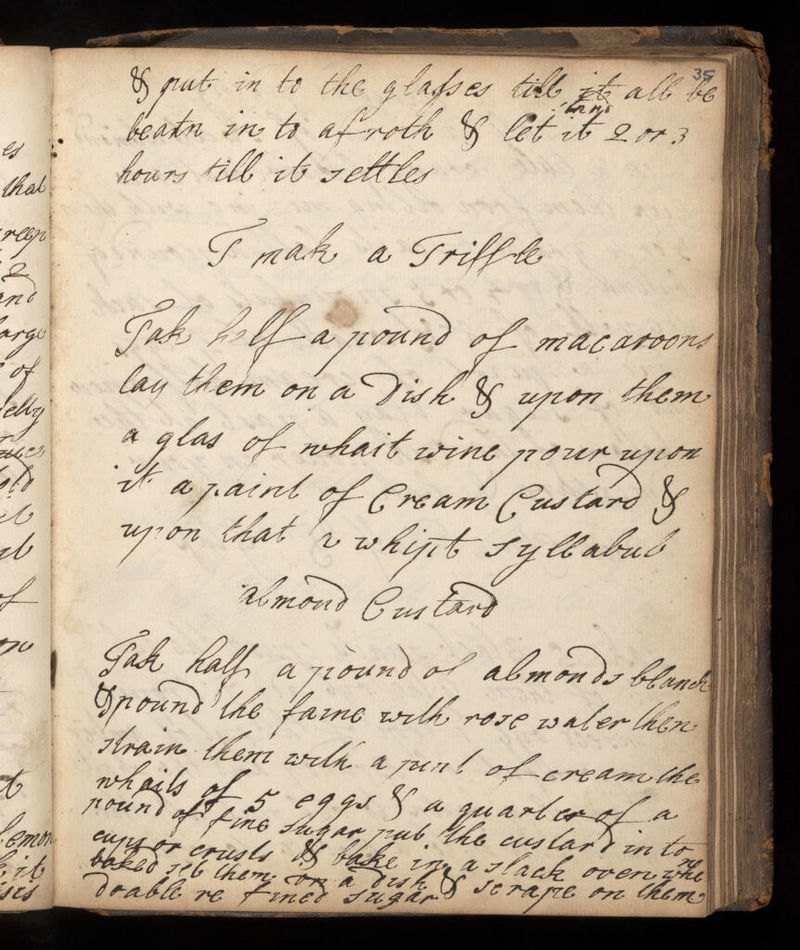 es
that
reen
2
and
large
of
elly
old
it
of
on
t
lemon
it
35
& put in to the glasses till it all be
stand
beatn in to a froth & let it 2 or 3
hours till it settles
T mak a Triffle
Tak half a pound of macaroons
lay them on a Dish & upon them
a glas of whait wine pour upon
it a paint of Cream Custard &
upon that a whipt syllabub
almond Custard
Tak half a pound of almonds blanch
& pound the same with rose water then
strain them with a pint of cream the
whaits of 5 eggs & a quarter of a
pound of fine sugar put the custard in to
cups or crusts & bake in a slack oven whe
baked set them on a dish & scrape on them
doable re fined sugar